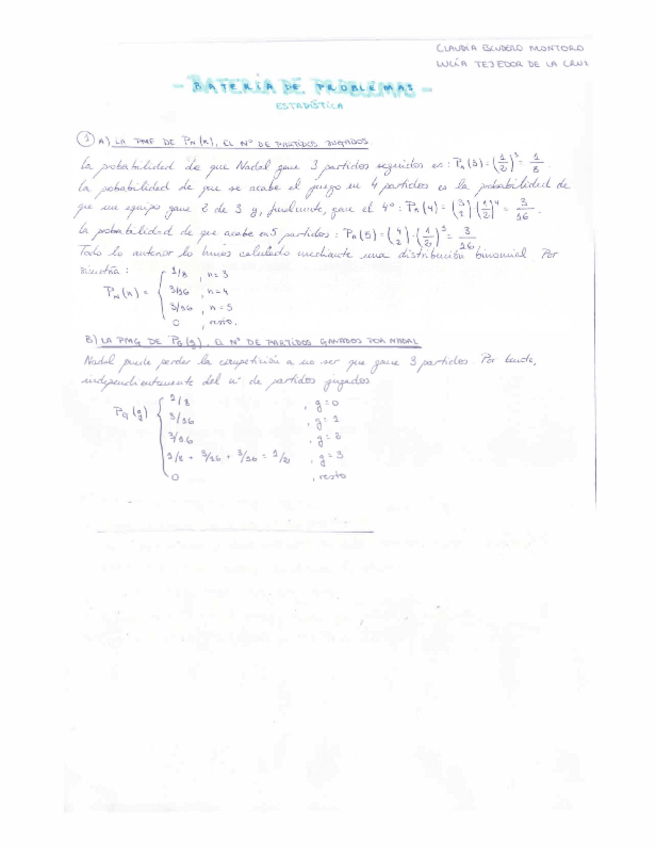 CLAUDIA ESCUDERO MONTORO
LUCÍA TEJEDOR DE LA CRUZ
- BATERÍA DE PROBLEMAS -
ESTADÍSTICA
① A) LA PMF DE PN(n), EL Nº DE PARTIDOS JUGADOS.
La probabilidad de que Nadal gane 3 partidos seguidos es: Pn(3) = (1/2)^3 = 1/8.
La probabilidad de que se acabe el juego en 4 partidos es la probabilidad de
que un equipo gane 2 de 3 y, finalmente, gane el 4º: Pn(4) = (3 2)(1/2)^4 = 3/16.
La probabilidad de que acabe en 5 partidos: Pn(5) = (4 2)·(1/2)^5 = 3/16
Todo lo anterior lo hemos calculado mediante una distribución binomial. Por
PN(n) = { 1/8 , n=3
3/16 , n=4
3/16 , n=5
0 , resto.
B) LA PMG DE PG(g), EL Nº DE PARTIDOS GANADOS POR NADAL
Nadal puede perder la competición a no ser que gane 3 partidos. Por tanto,
independientemente del nº de partidos jugados
PG(g) { 1/8 , g=0
3/16 , g=1
3/16 , g=2
1/8 + 3/16 + 3/16 = 1/2 , g=3
0 , resto